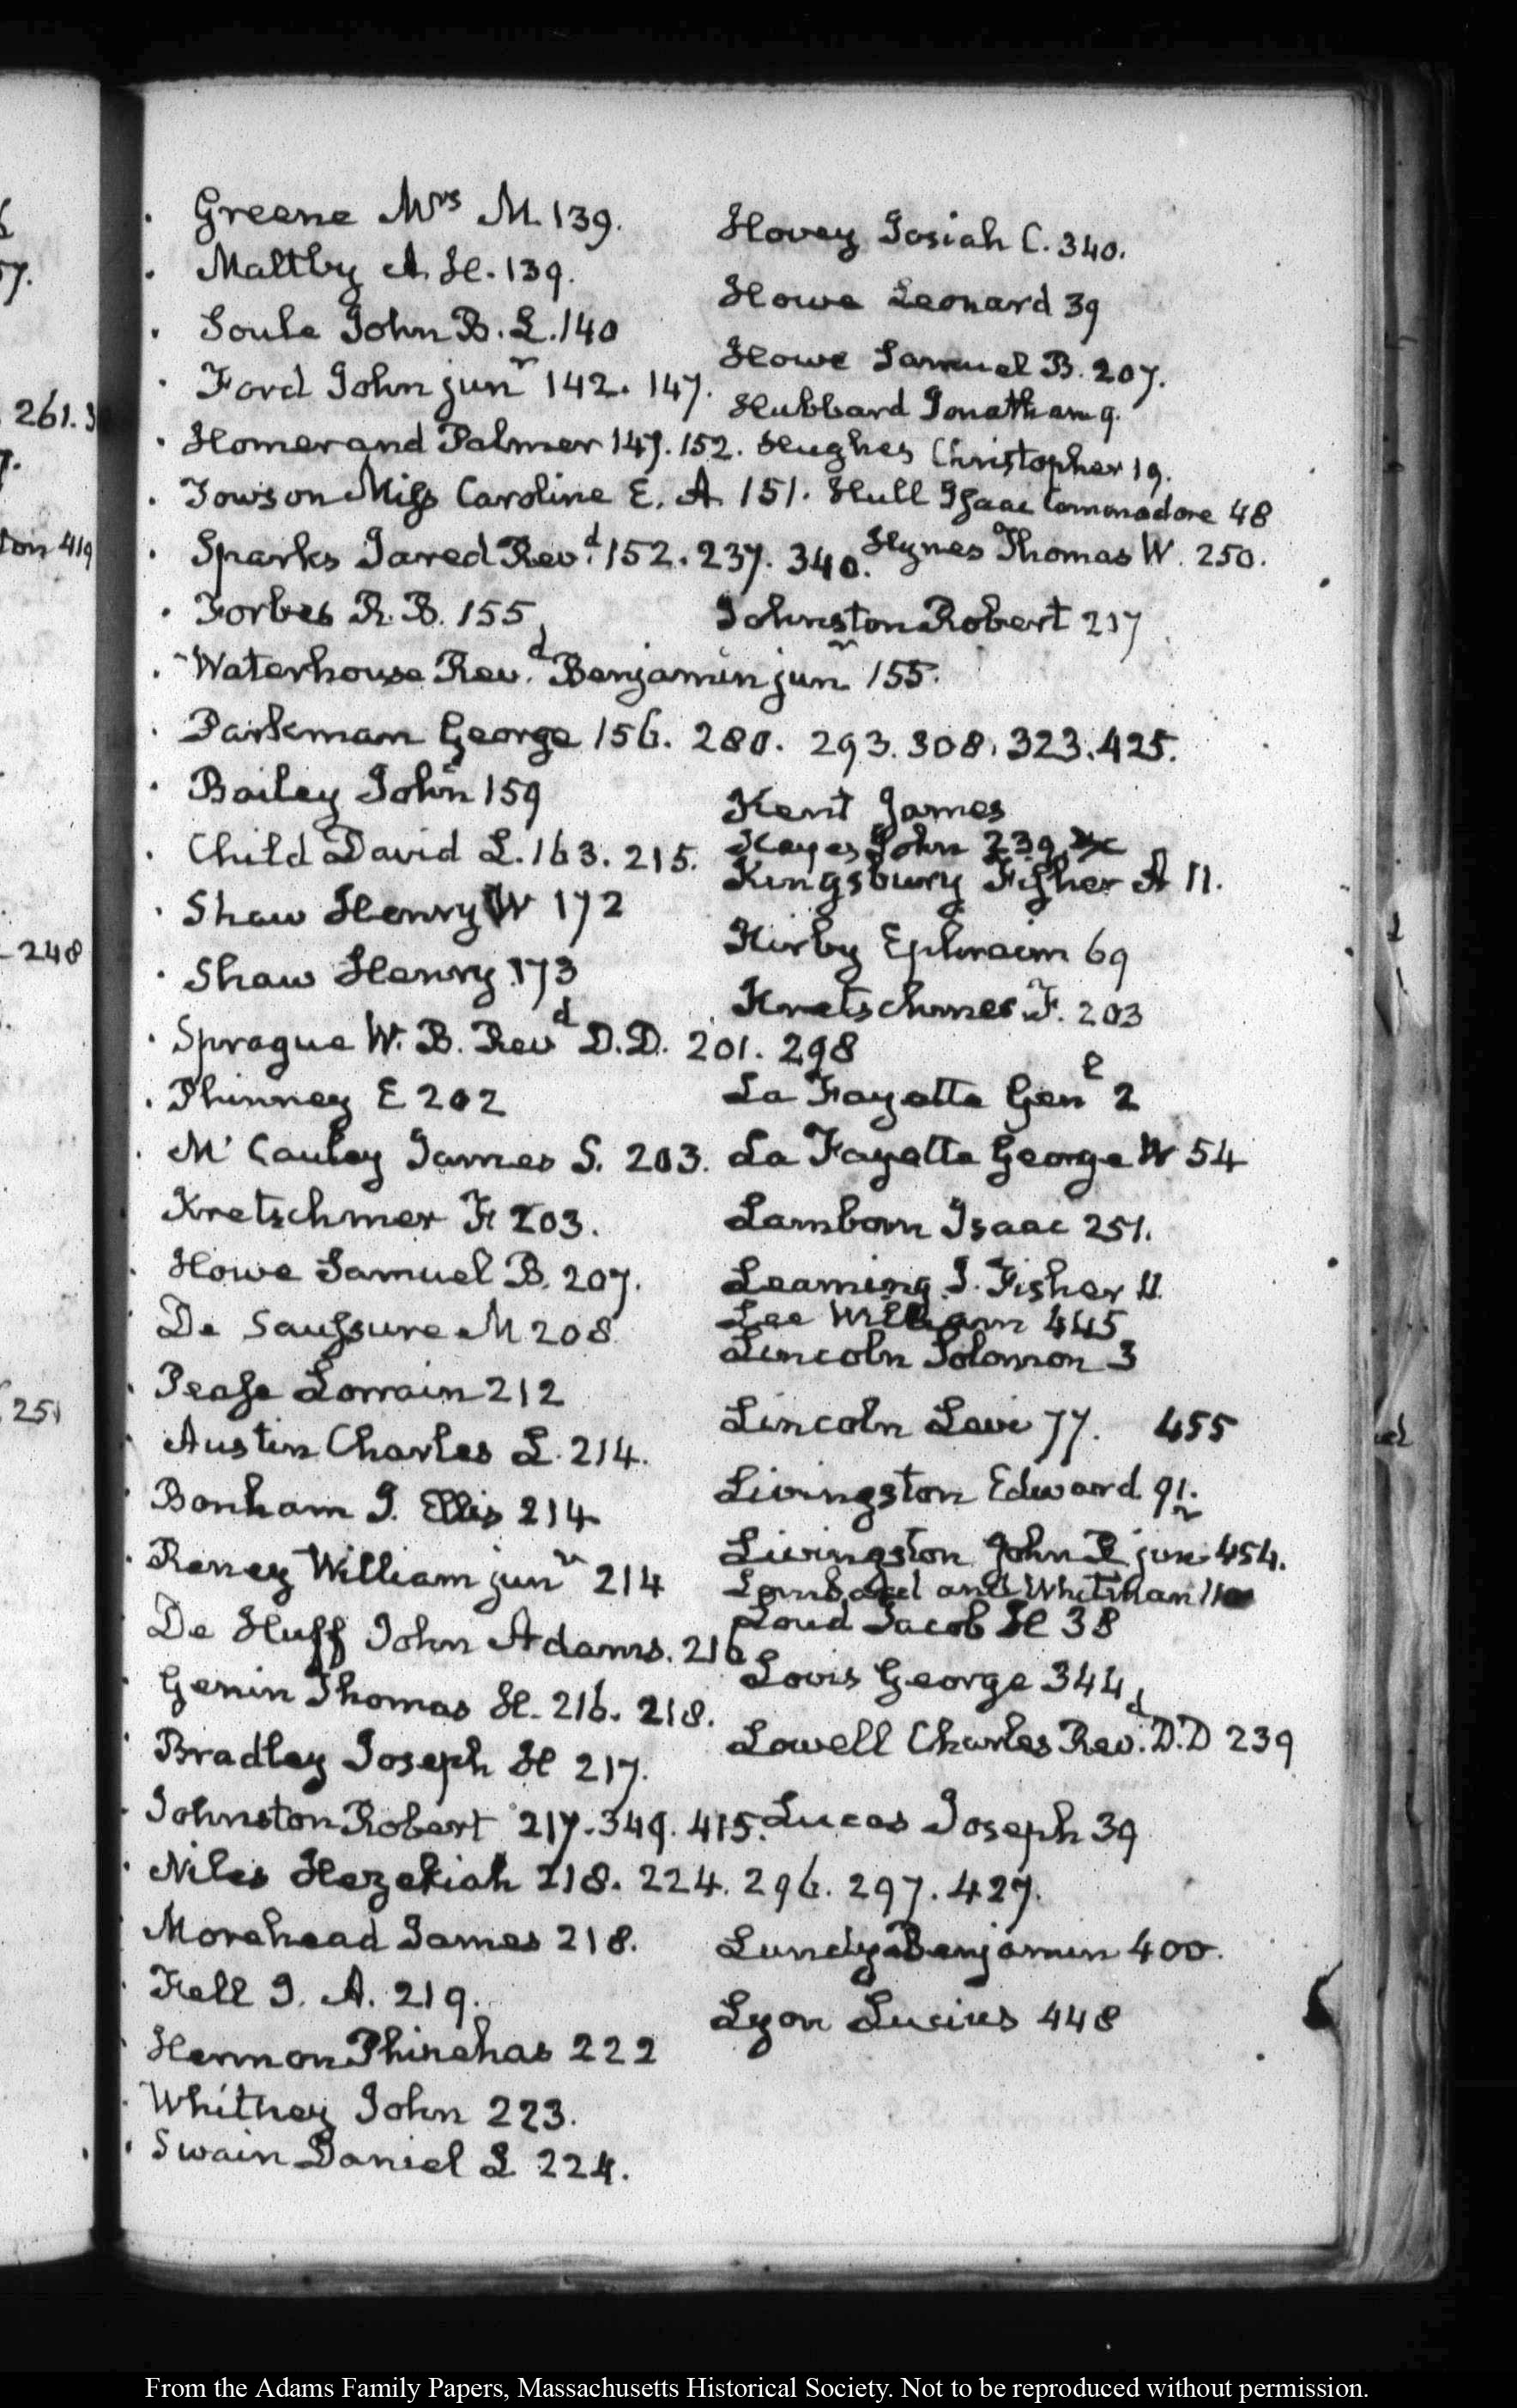 Greene Mrs M. 139.
Maltby A. H. 139.
Soule John B. L. 140
Ford John junr 142. 147.
Homer and Palmer 147. 152.
Towson Miss Caroline E. A. 151.
Sparks Jared Revd. 152. 237. 340.
Forbes R. B. 155
Waterhouse Revd. Benjamin junr 155.
Parkman George 156. 280. 293. 308. 323. 425.
Bailey John 159
Child David L. 163. 215.
Shaw Henry W 172
Shaw Henry 173
Sprague W. B. Revd D.D. 201. 298
Phinney E 202
Mc Cauley James S. 203.
Kretschmer F 203.
Howe Samuel B. 207.
De Saussure M 208
Pease Lorrain 212
Austin Charles L. 214.
Bonham J. Ellis 214
Raney William junr 214
De Huff John Adams. 216
Genin Thomas H. 216. 218.
Bradley Joseph H 217.
Johnston Robert 217. 349. 415.
Niles Hezekiah 218. 224. 296. 297. 427.
Morehead James 218.
Fell J. A. 219.
Hermon Phinehas 222
Whitney John 223.
Swain Daniel L 224.
Hovey Josiah C. 340.
Howe Leonard 39
Howe Samuel B. 207.
Hubbard Jonathan 9.
Hughes Christopher 19.
Hull Isaac Commodore 48
Hynes Thomas W. 250.
Johnston Robert 217
Kent James
Keyes John 239.
Kingsbury Fisher A 11.
Kirby Ephraim 69
Kretschmer F. 203
La Fayette Genl 2
La Fayette George W 54
Lamborn Isaac 251.
Leaming J. Fisher 11.
Lee William 445
Lincoln Solomon 3
Lincoln Levi 77. 455
Livingston Edward 91.
Livingston John R junr 454.
Lombard and Whitman
Loud Jacob H 38
Lovis George 344
Lowell Charles Revd. D.D 239
Lucas Joseph 39
Lundy Benjamin 400.
Lyon Lucius 448
57.
261. 3
ton 419
248
251
From the Adams Family Papers, Massachusetts Historical Society. Not to be reproduced without permission.